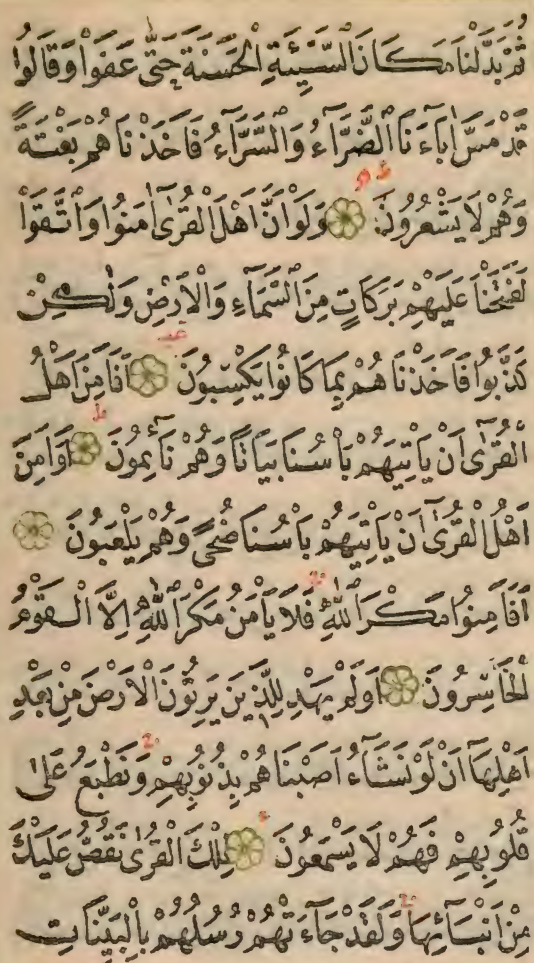 ثُمَّ بَدَّلْنَا مَكَانَ السَّيِّئَةِ الْحَسَنَةَ حَتَّى عَفَوْا وَقَالُوا
قَدْ مَسَّ اٰبَاءَنَا الضَّرَّاءُ وَالسَّرَّاءُ فَاَخَذْنَاهُمْ بَغْتَةً
وَهُمْ لَا يَشْعُرُونَ وَلَوْ اَنَّ اَهْلَ الْقُرٰى اٰمَنُوا وَاتَّقَوْا
لَفَتَحْنَا عَلَيْهِمْ بَرَكَاتٍ مِنَ السَّمَاءِ وَالْاَرْضِ وَلٰكِنْ
كَذَّبُوا فَاَخَذْنَاهُمْ بِمَا كَانُوا يَكْسِبُونَ اَفَاَمِنَ اَهْلُ
الْقُرٰى اَنْ يَاْتِيَهُمْ بَاْسُنَا بَيَاتًا وَهُمْ نَائِمُونَ اَوَاَمِنَ
اَهْلُ الْقُرٰى اَنْ يَاْتِيَهُمْ بَاْسُنَا ضُحًى وَهُمْ يَلْعَبُونَ
اَفَاَمِنُوا مَكْرَ اللّٰهِ فَلَا يَاْمَنُ مَكْرَ اللّٰهِ اِلَّا الْقَوْمُ
الْخَاسِرُونَ اَوَلَمْ يَهْدِ لِلَّذِينَ يَرِثُونَ الْاَرْضَ مِنْ بَعْدِ
اَهْلِهَا اَنْ لَوْ نَشَاءُ اَصَبْنَاهُمْ بِذُنُوبِهِمْ وَنَطْبَعُ عَلٰى
قُلُوبِهِمْ فَهُمْ لَا يَسْمَعُونَ تِلْكَ الْقُرٰى نَقُصُّ عَلَيْكَ
مِنْ اَنْبَائِهَا وَلَقَدْ جَاءَتْهُمْ رُسُلُهُمْ بِالْبَيِّنَاتِ